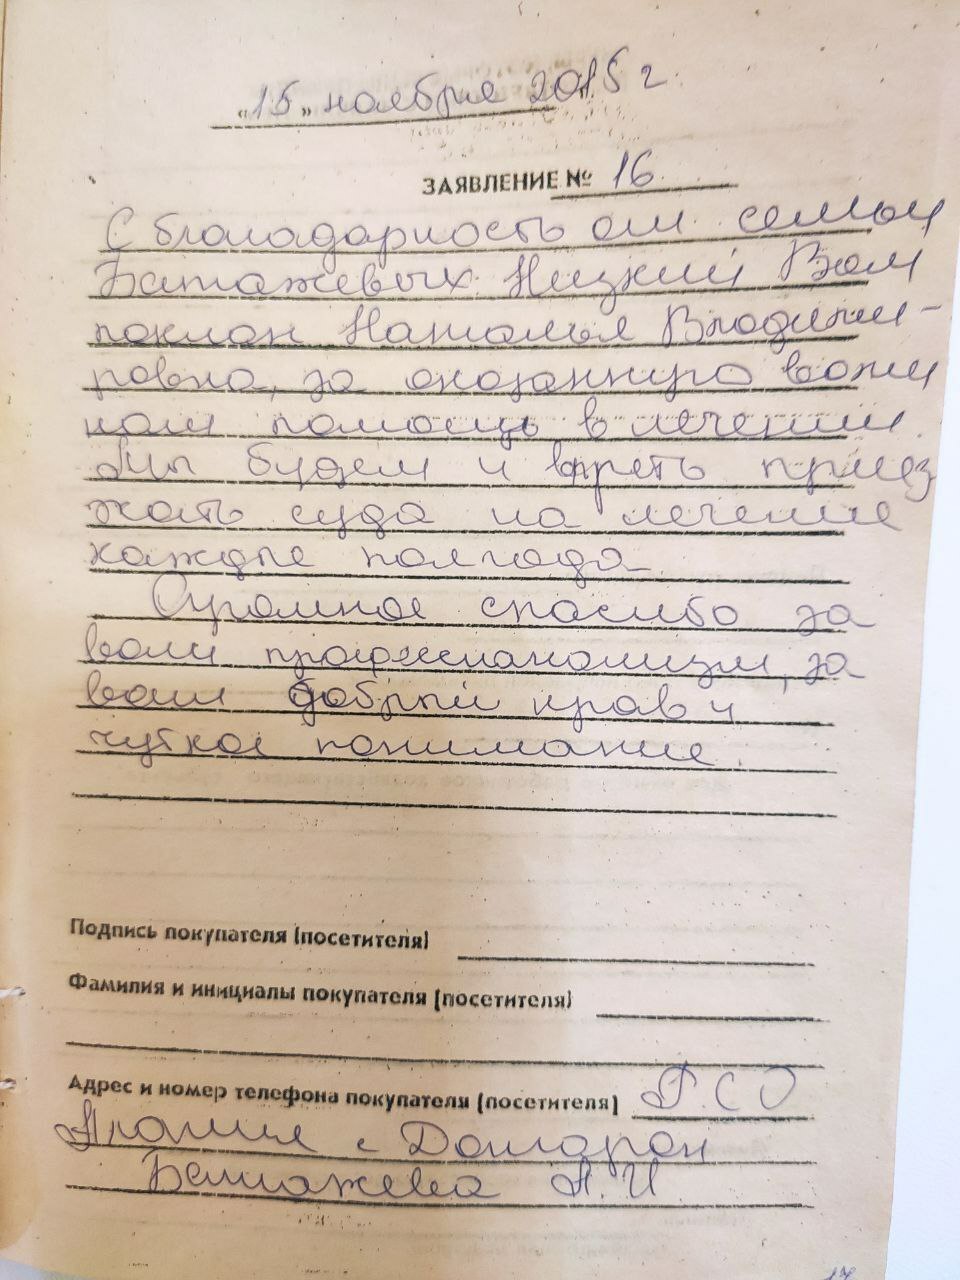 „15„ ноября 2015 г
ЗАЯВЛЕНИЕ № 16
С благодарность от семьи
Баташевых. Низкий Вам
поклон Наталья Владими-
ровна, за оказанную вами
нам помощь в лечении.
Мы будем и впреть приез
жать суда на лечение
каждые полгода.
Огромное спасибо за
ваш профисианализм, за
ваш добрый нрав и
чуткое понимание.
Подпись покупателя (посетителя)
Фамилия и инициалы покупателя (посетителя)
Адрес и номер телефона покупателя (посетителя) Р.С.О
Алания с
А.И